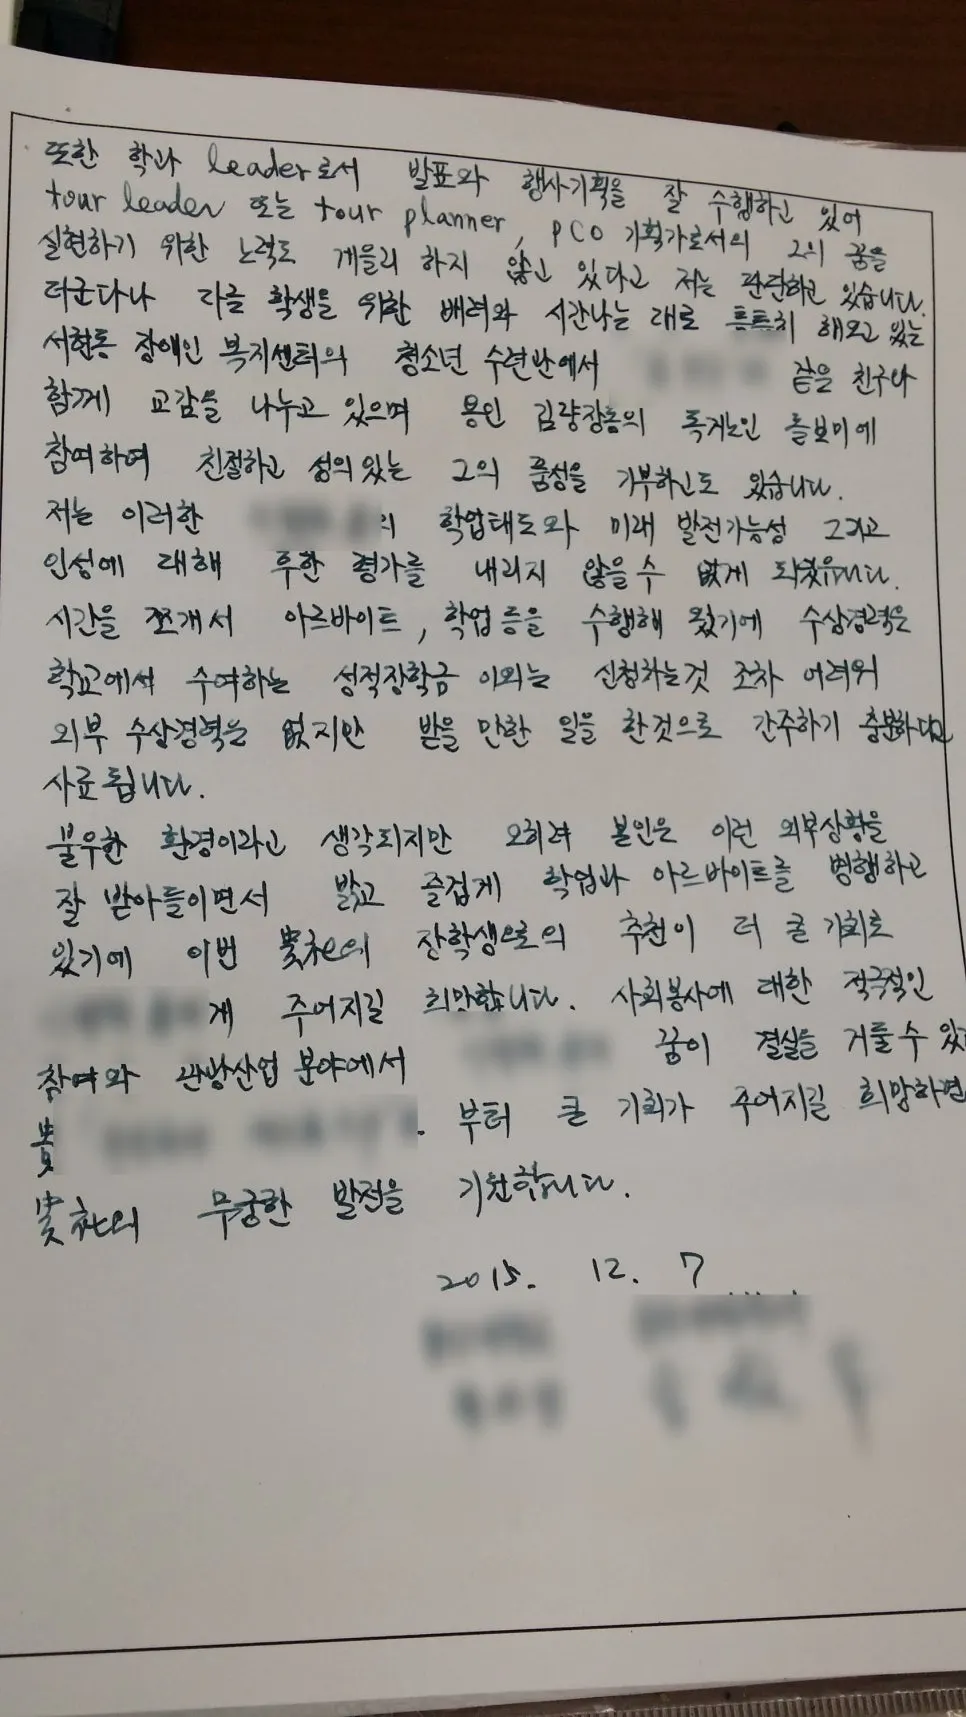 또한 학과 leader로서 발표와 행사기획을 잘 수행하고 있어
tour leader 또는 tour planner, PCO 기획가로서의 그의 꿈을
실현하기 위한 노력도 게을리 하지 않고 있다고 저는 판단하고 있습니다.
더군다나 다른 학생을 위한 배려와 시간나는 대로 틈틈히 해오고 있는
서현동 장애인 복지센터의 청소년 수련관에서 같은 친구나
함께 교감을 나누고 있으며 용인 김량장동의 독거노인 돌보미에
참여하여 친절하고 성의있는 그의 품성을 기부하고도 있습니다.
저는 이러한 의 학업태도와 미래 발전가능성 그리고
인성에 대해 후한 평가를 내리지 않을수 없게 되었습니다.
시간을 쪼개서 아르바이트, 학업등을 수행해 왔기에 수상경력은
학교에서 수여하는 성적장학금 이외는 신청하는것 조차 어려워
외부 수상경력은 없지만 받을 만한 일을 한것으로 간주하기 충분하다고
사료됩니다.
불우한 환경이라고 생각되지만 오히려 본인은 이런 외부상황을
잘 받아들이면서 밝고 즐겁게 학업과 아르바이트를 병행하고
있기에 이번 貴社의 장학생으로의 추천이 더 큰 기회로
게 주어지길 희망합니다. 사회봉사에 대한 적극적인
참여와 관광산업 분야에서 꿈이 결실을 거둘수 있
貴 부터 큰 기회가 주어지길 희망하면
貴社의 무궁한 발전을 기원합니다.
2015. 12. 7